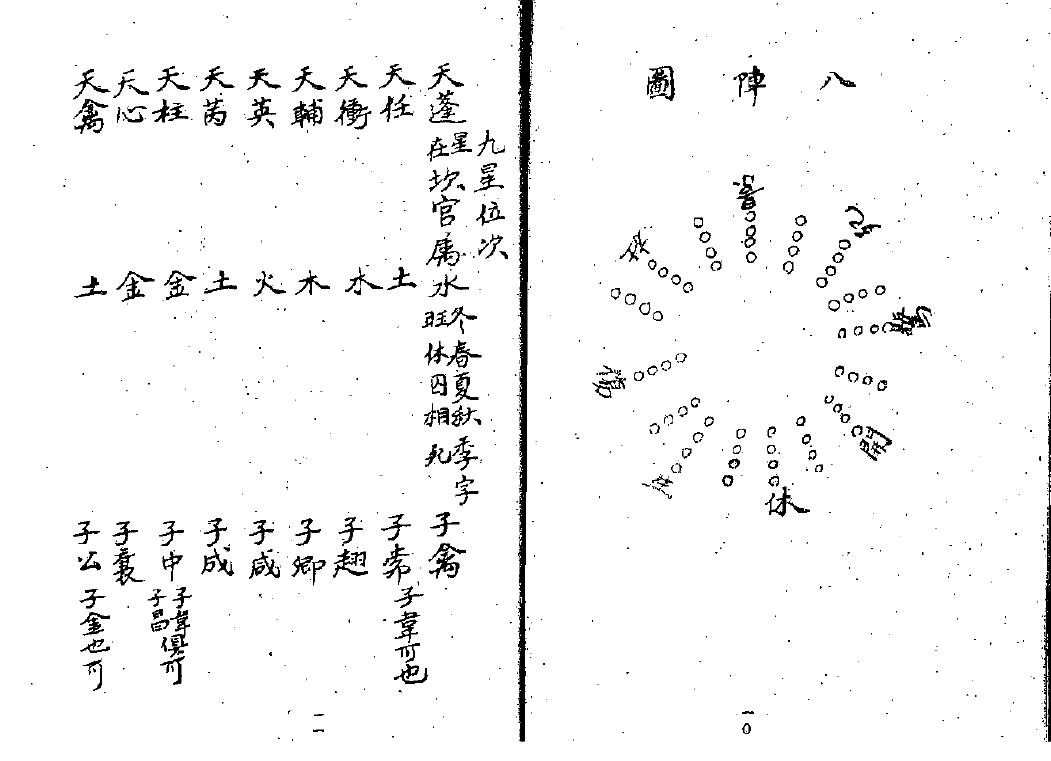 八陣圖
景
死
驚
開
休
生
傷
一〇
九星位次
天蓬 星在坎宮屬水 冬春夏秋季字 旺休囚相死 子禽
天任 土 子常 子韋可也
天衝 木 子翹
天輔 木 子卿
天英 火 子咸
天芮 土 子成
天柱 金 子申 子韋俱可 子昌
天心 金 子襄
天禽 土 子公 子金也可
一一